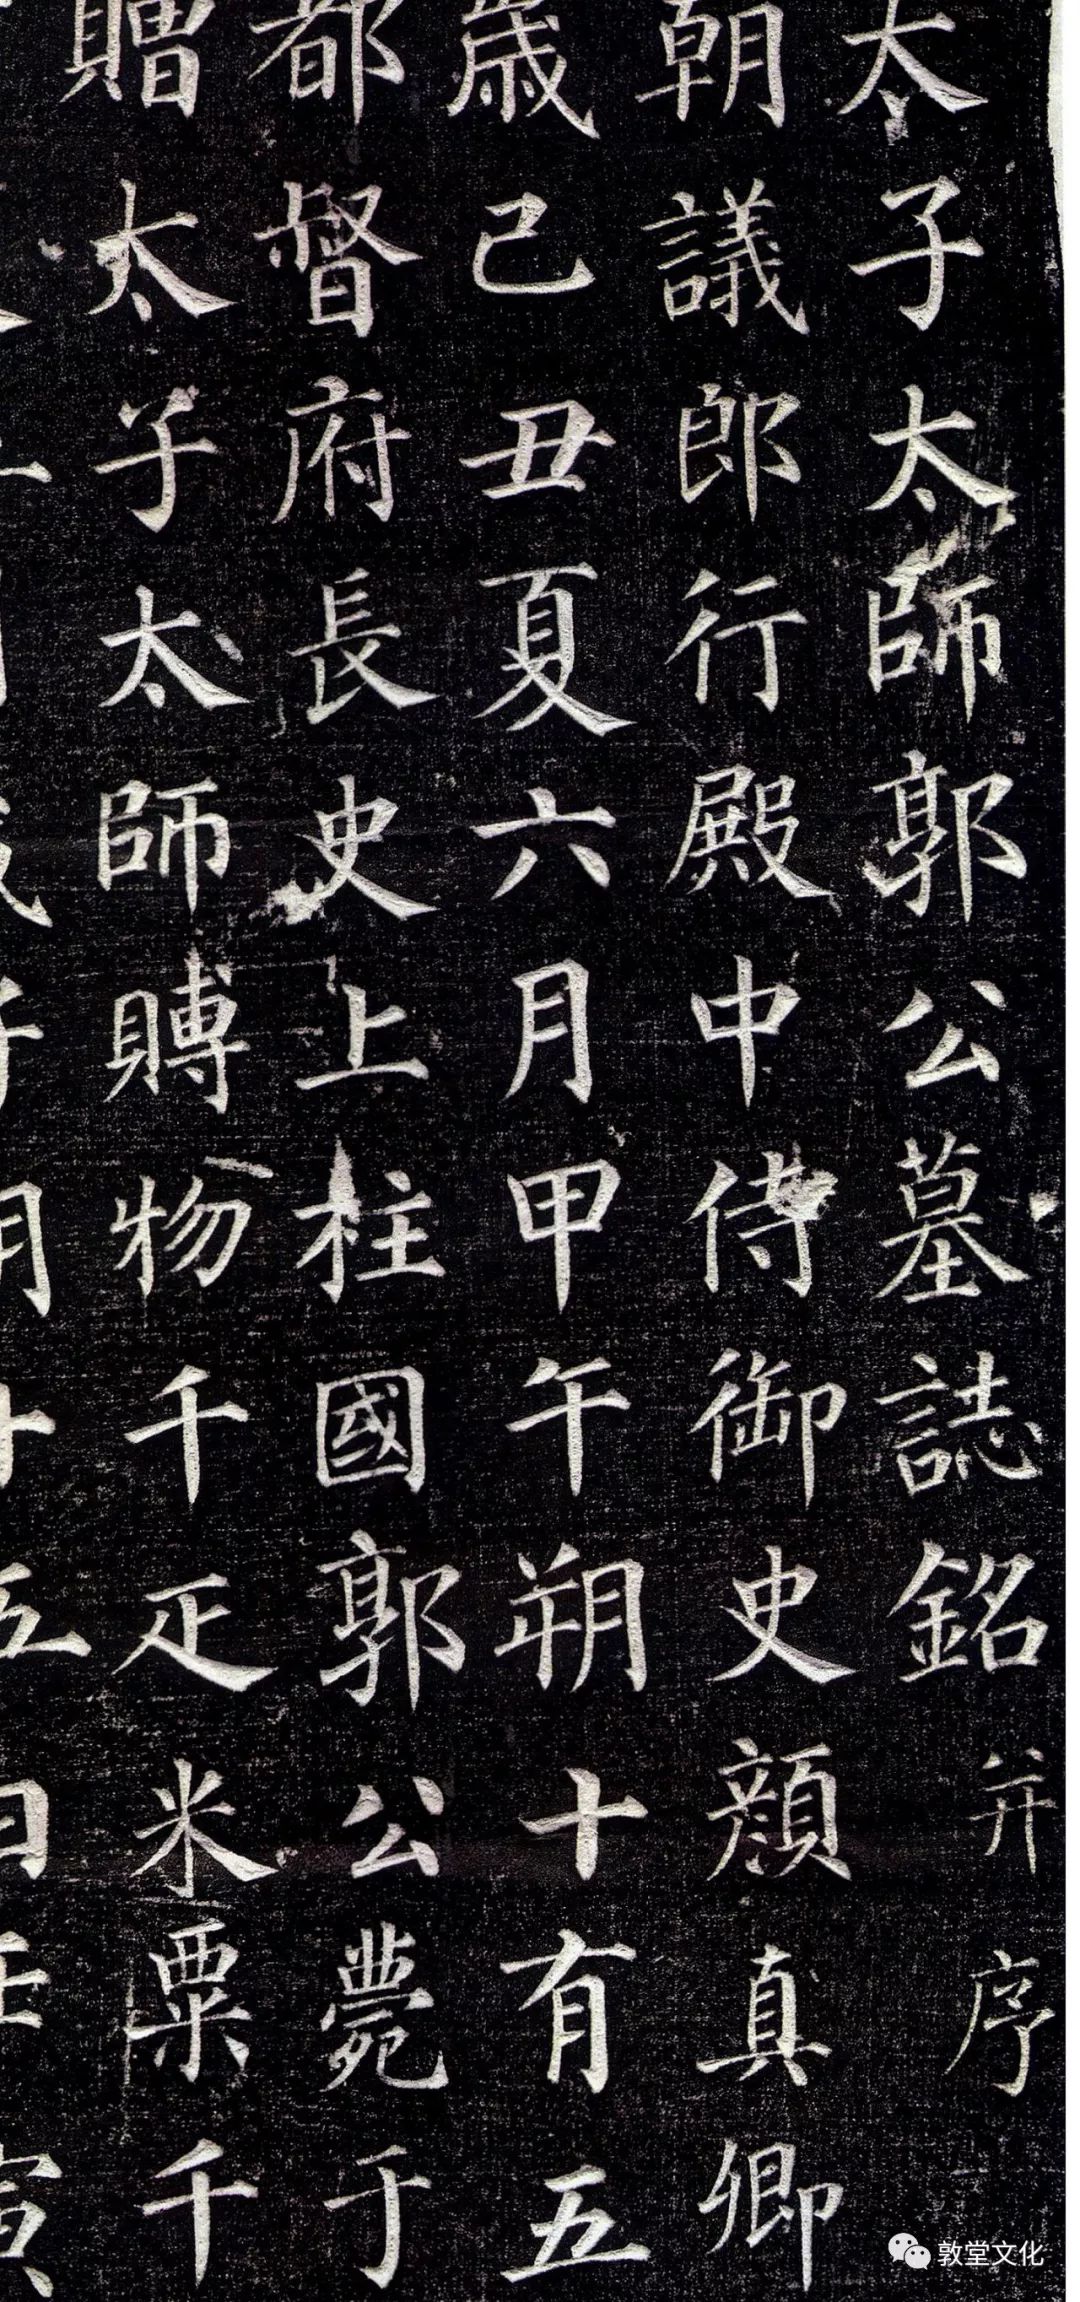 太子太師郭公墓誌銘并序
朝議郎行殿中侍御史顏真卿
歲己丑夏六月甲午朔十有五
都督府長史上柱國郭公薨于
贈太子太師賻物千疋米粟千
敦堂文化